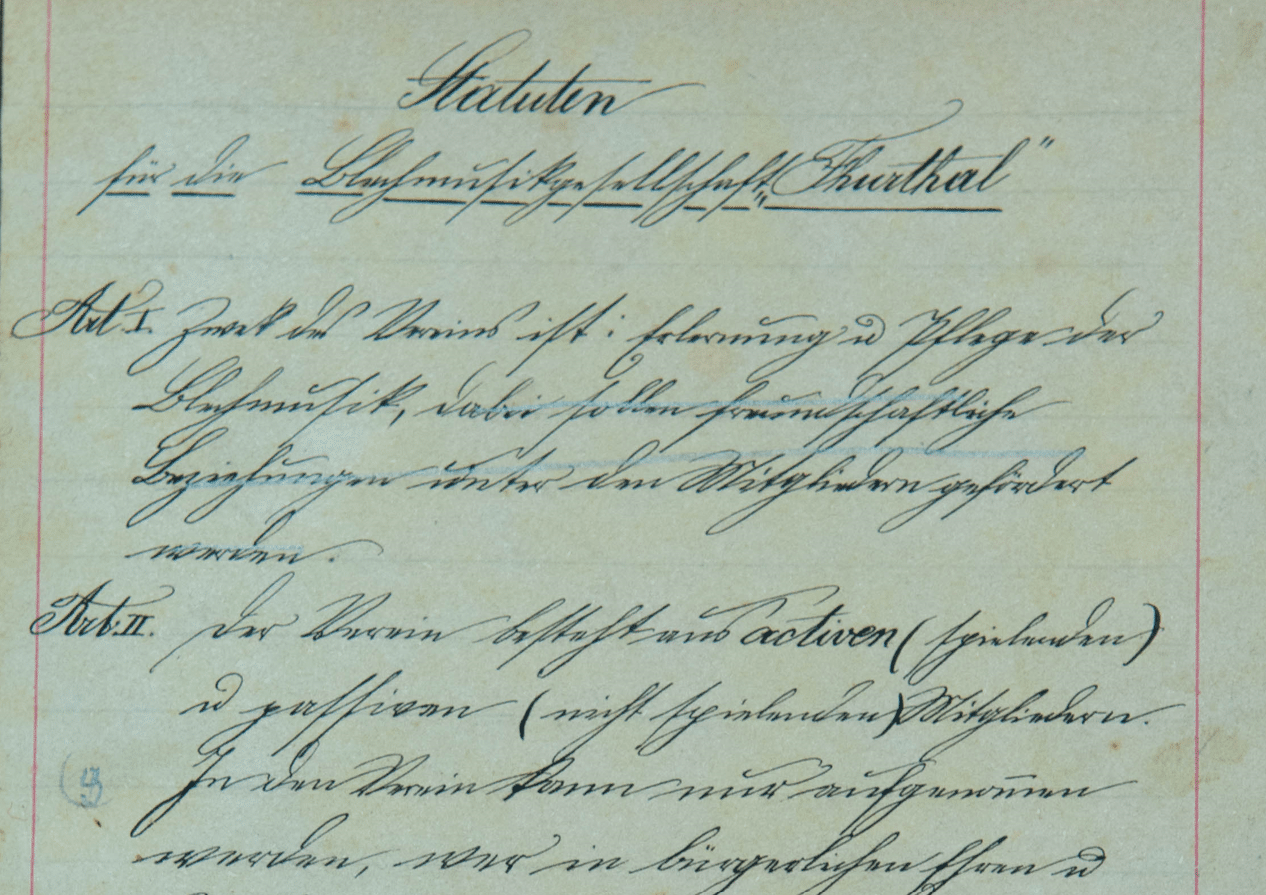 Statuten
für die Blechmusikgesellschaft „Thurthal"
Art. I. Zwek des Vereins ist: Erlernung u Pflege der
Blechmusik, dabei sollen freundschaftliche
Beziehungen unter den Mitgliedern gefördert
werden.
Art. II. Der Verein besteht aus activen (spielenden)
u passiven (nicht spielenden) Mitgliedern.
In den Verein kann nur aufgenom̅en
werden, wer in bürgerlichen Ehren u